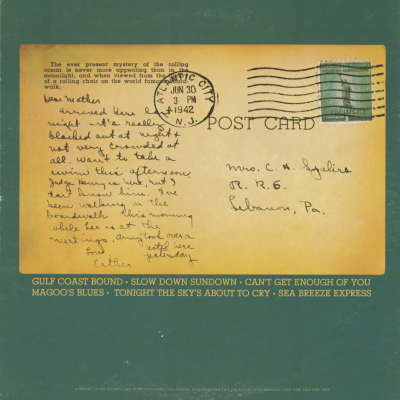 The ever present mystery of the rolling
ocean is never more appealing than in the
moonlight, and when viewed from the
of a rolling chair on the world famous board-
walk.
ATLANTIC CITY
JUN 30
3 PM
1942
N.J.
POST CARD
Dear Mother
arrived here last
night - it's really
blacked out at night &
not very crowded at
all. Want to take a
swim this afternoon
Judge is here, but I
don't know him. I've
been walking on the
boardwalk this morning
while Lee is at the
meetings. Army took over a
hotel here
yesterday
Love
Esther
Mrs. C. H.
R. R. 6.
Lebanon, Pa.
GULF COAST BOUND • SLOW DOWN SUNDOWN • CAN'T GET ENOUGH OF YOU
MAGOO'S BLUES • TONIGHT THE SKY'S ABOUT TO CRY • SEA BREEZE EXPRESS